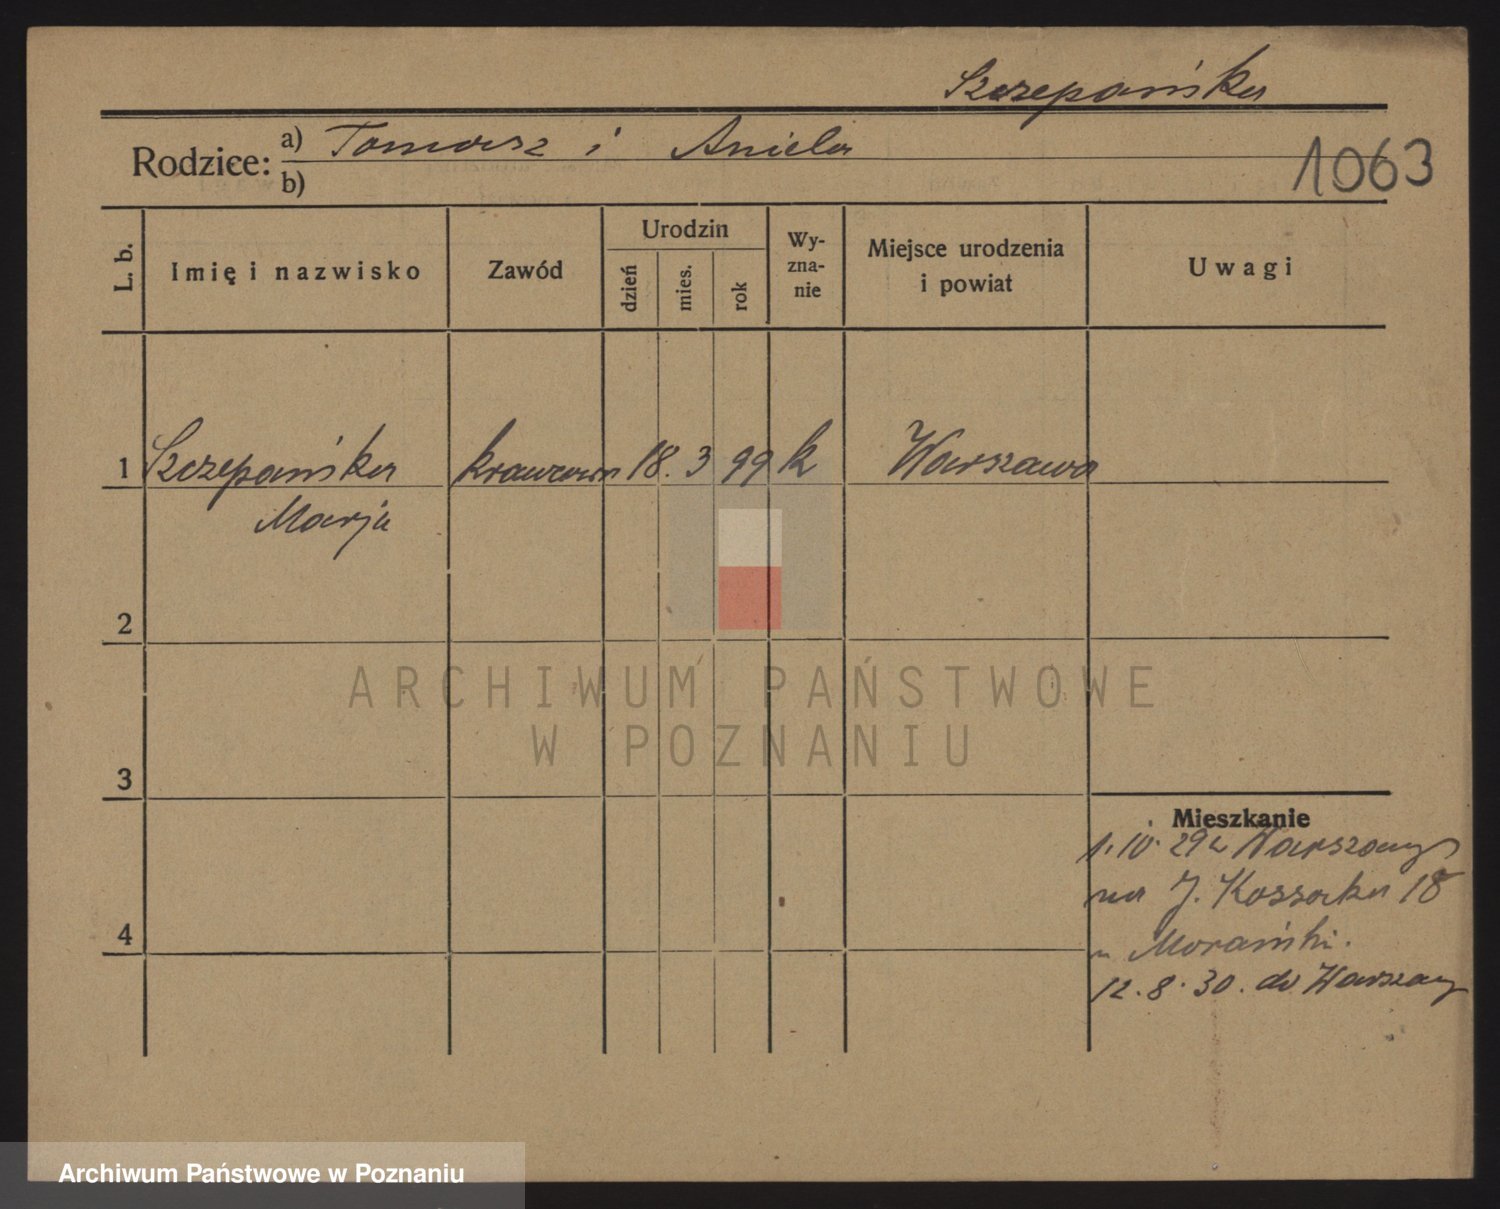 Szczepańska
Rodzice: a) Tomasz i Aniela
b)
1063
L. b.
Imię i nazwisko
Zawód
Urodzin
dzień
mies.
rok
Wy-
zna-
nie
Miejsce urodzenia
i powiat
Uwagi
1 Szczepańska krawcowa 18. 3 99 k Warszawa
Marja
2
3
4
Mieszkanie
1. 10. 29 z Warszawy
na J. Kossaka 18
u Morański.
12. 8. 30. do Warszawy
ARCHIWUM PAŃSTWOWE
W POZNANIU
Archiwum Państwowe w Poznaniu